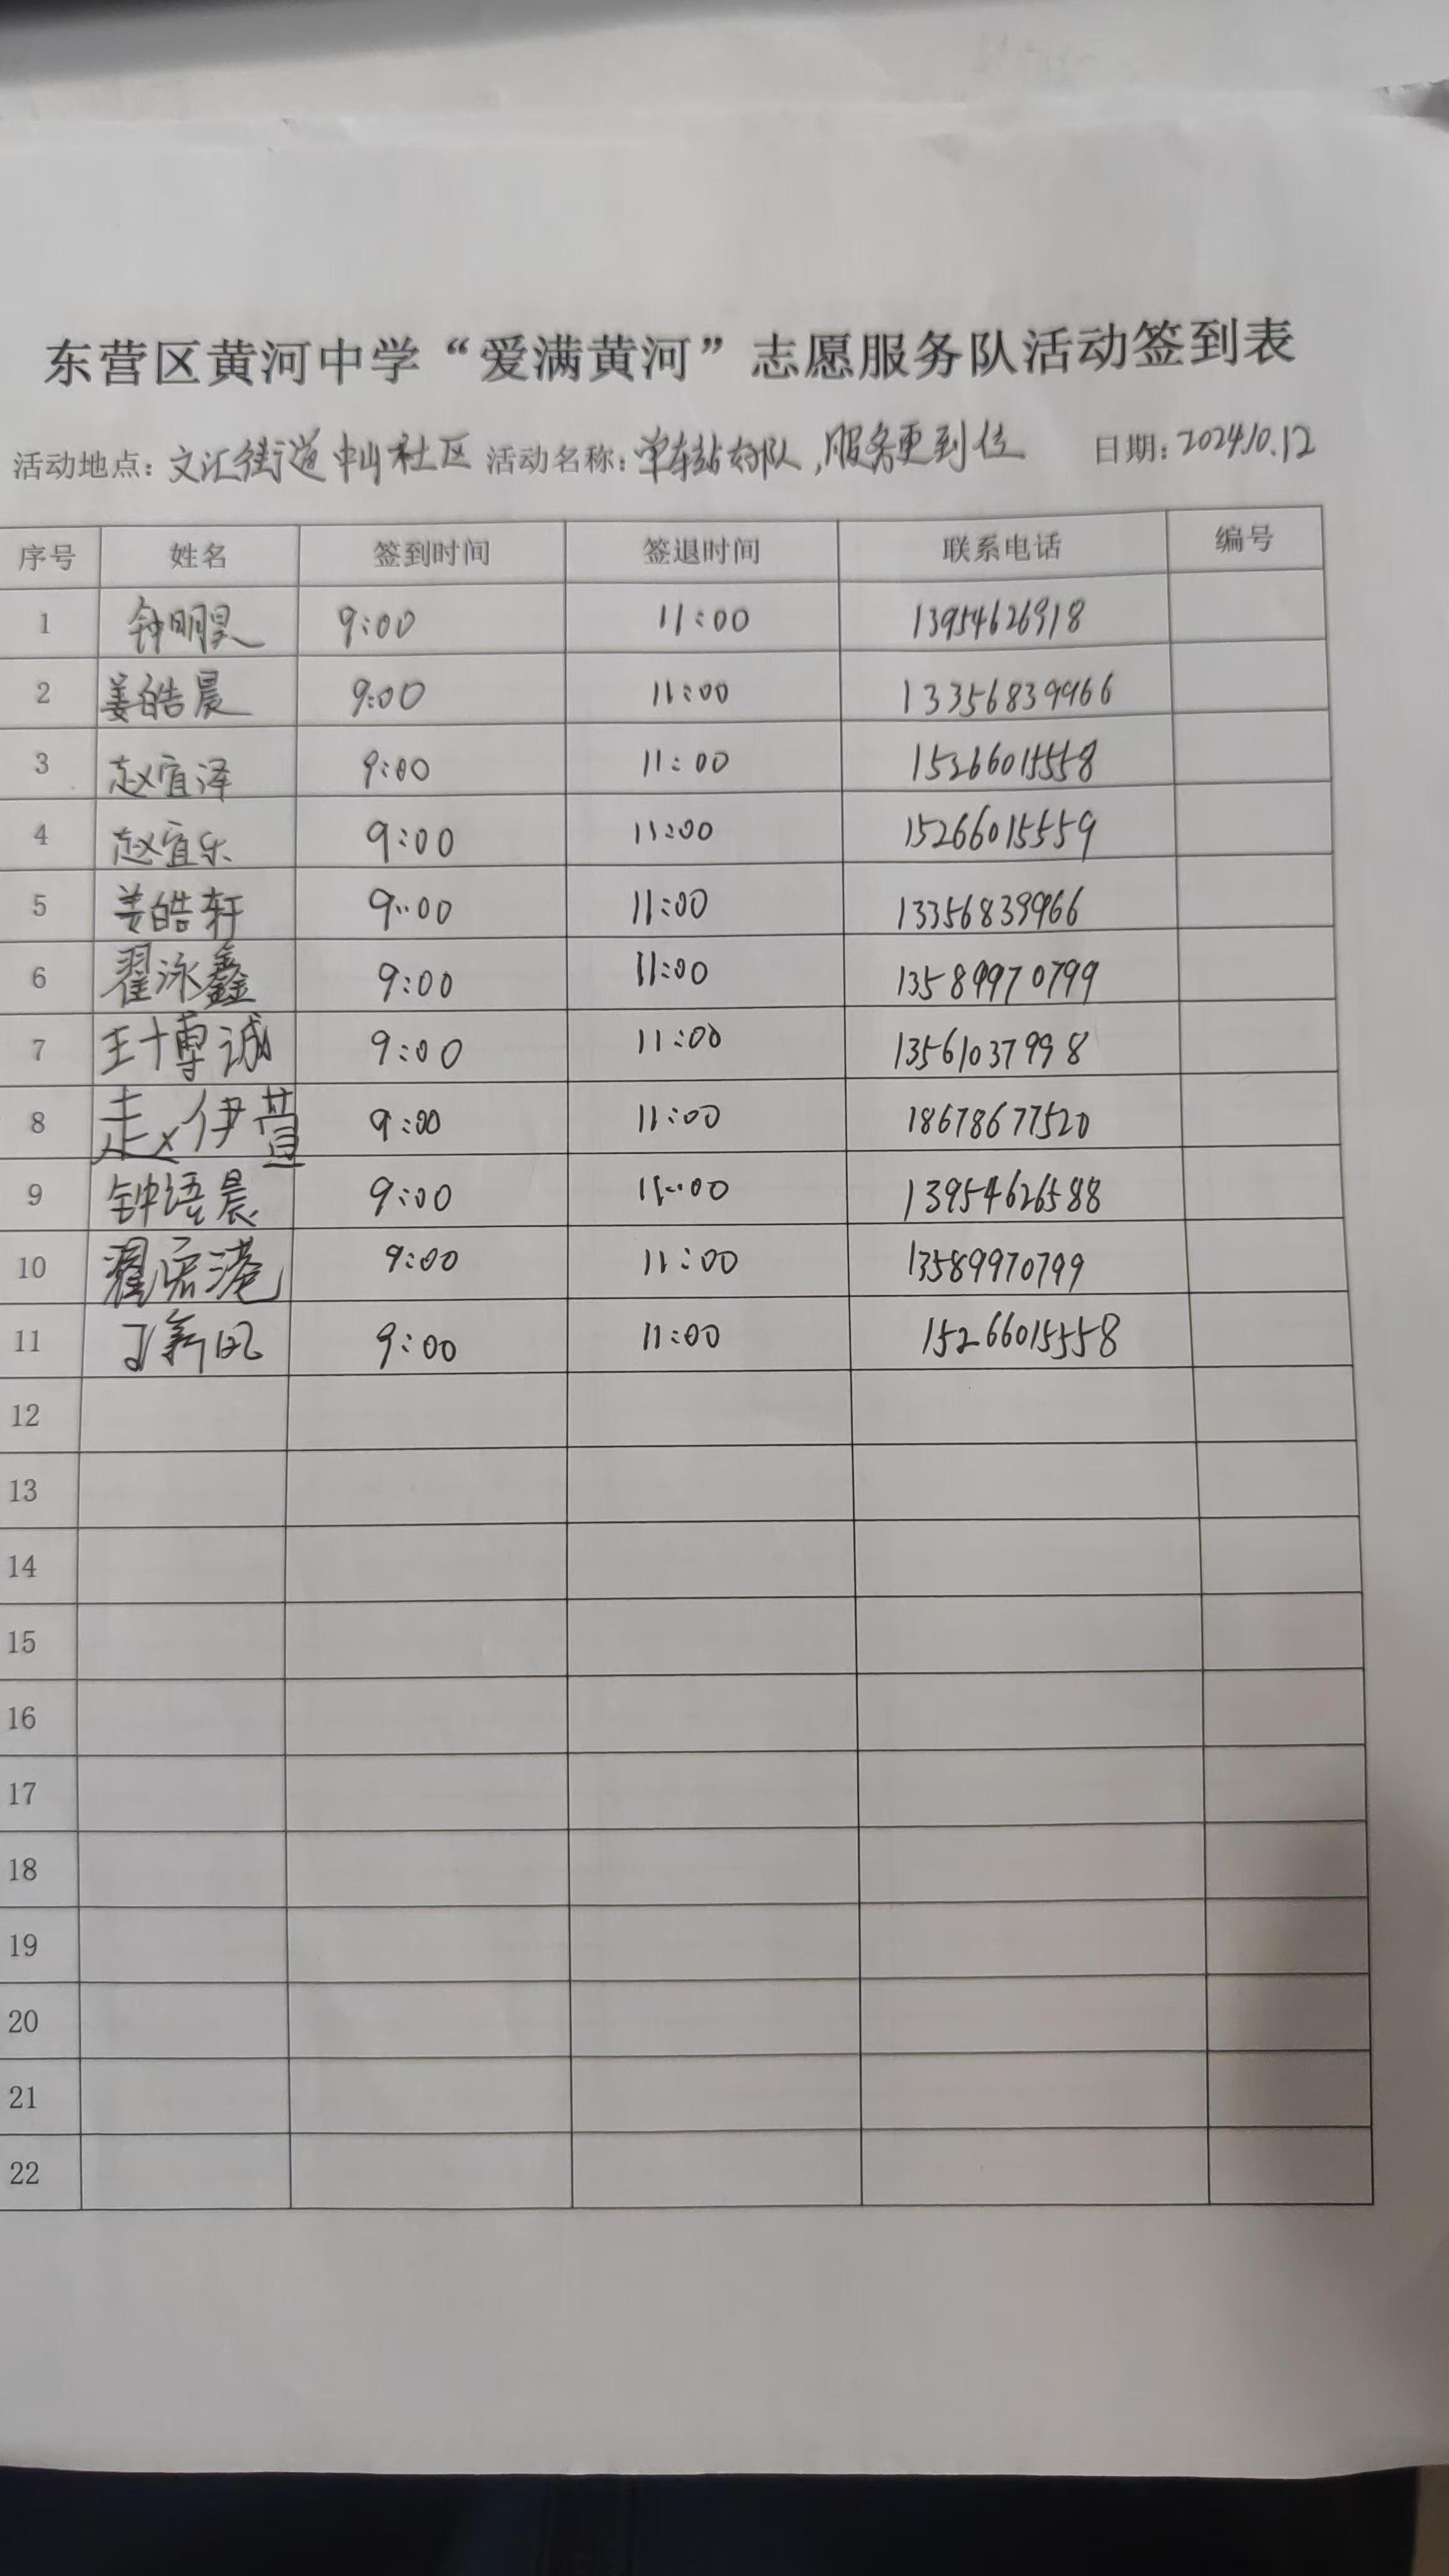 东营区黄河中学“爱满黄河”志愿服务队活动签到表
活动地点：文汇街道中山社区 活动名称：单车站好队，服务更到位 日期：2024.10.12
序号 姓名 签到时间 签退时间 联系电话 编号
1 钟明昊 9:00 11:00 13954626918
2 姜皓晨 9:00 11:00 13356839966
3 赵宜泽 9:00 11:00 15266015558
4 赵宜乐 9:00 11:00 15266015559
5 姜皓轩 9:00 11:00 13356839966
6 翟泳鑫 9:00 11:00 13589970799
7 王博诚 9:00 11:00 13561037998
8 赵伊萱 9:00 11:00 18678677520
9 钟语晨 9:00 11:00 13954626588
10 翟宏港 9:00 11:00 13589970799
11 新 9:00 11:00 15266015558
12
13
14
15
16
17
18
19
20
21
22